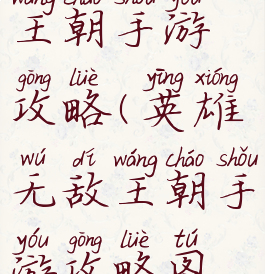 wáng cháo shǒu yóu
王朝手游
gōng lüè yīng xióng
攻略(英雄
wú dí wáng cháo shǒu
无敌王朝手
yóu gōng lüè tú
游攻略图